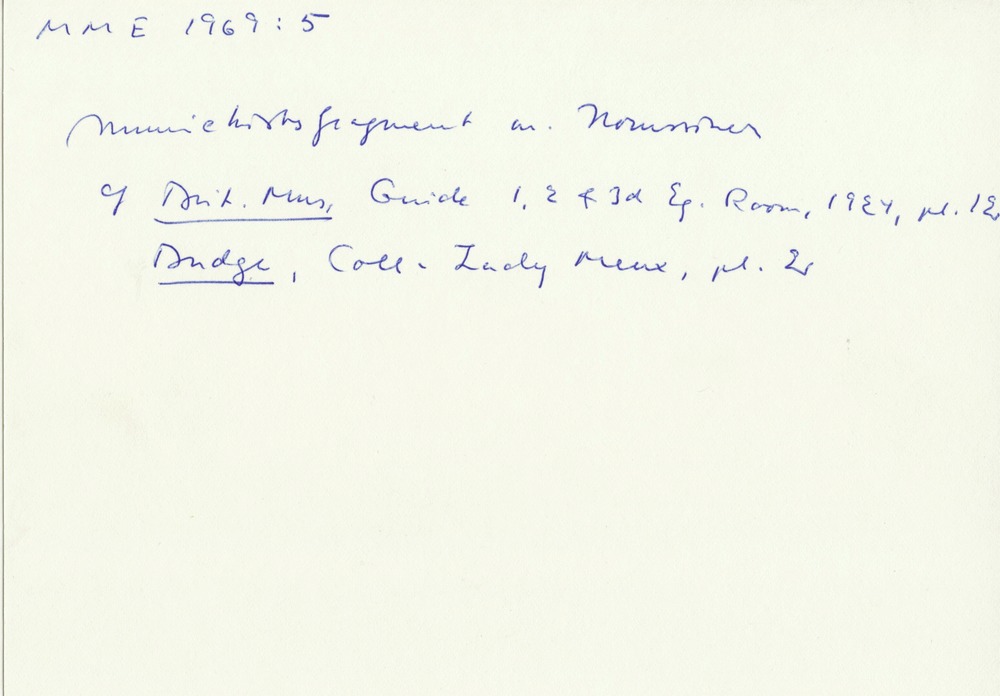 MME 1969:5
Mumiekistsfragment m. Horussöner
cf Brit. Mus, Guide 1, 2 & 3d Eg. Room, 1924, pl. 12
Budge, Coll. Lady Meux, pl. 2